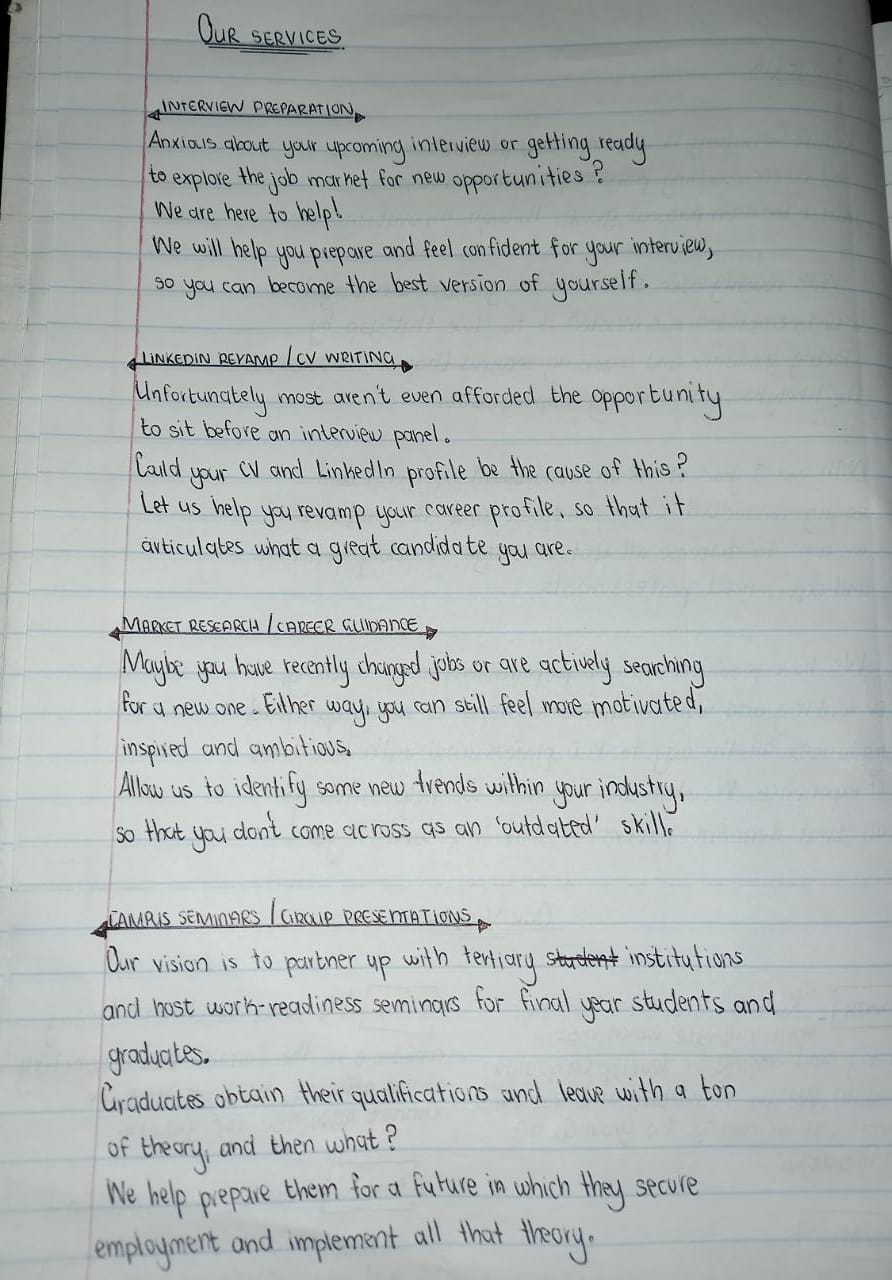 OUR SERVICES
INTERVIEW PREPARATION
Anxious about your upcoming interview or getting ready
to explore the job market for new opportunities?
We are here to help!
We will help you prepare and feel confident for your interview,
so you can become the best version of yourself.
LINKEDIN REVAMP / CV WRITING
Unfortunately most aren't even afforded the opportunity
to sit before an interview panel.
Could your CV and LinkedIn profile be the cause of this?
Let us help you revamp your career profile, so that it
articulates what a great candidate you are.
MARKET RESEARCH / CAREER GUIDANCE
Maybe you have recently changed jobs or are actively searching
for a new one. Either way, you can still feel more motivated,
inspired and ambitious.
Allow us to identify some new trends within your industry,
so that you don't come across as an 'outdated' skill.
CAMPUS SEMINARS / GROUP PRESENTATIONS
Our vision is to partner up with tertiary student institutions
and host work-readiness seminars for final year students and
graduates.
Graduates obtain their qualifications and leave with a ton
of theory, and then what?
We help prepare them for a future in which they secure
employment and implement all that theory.